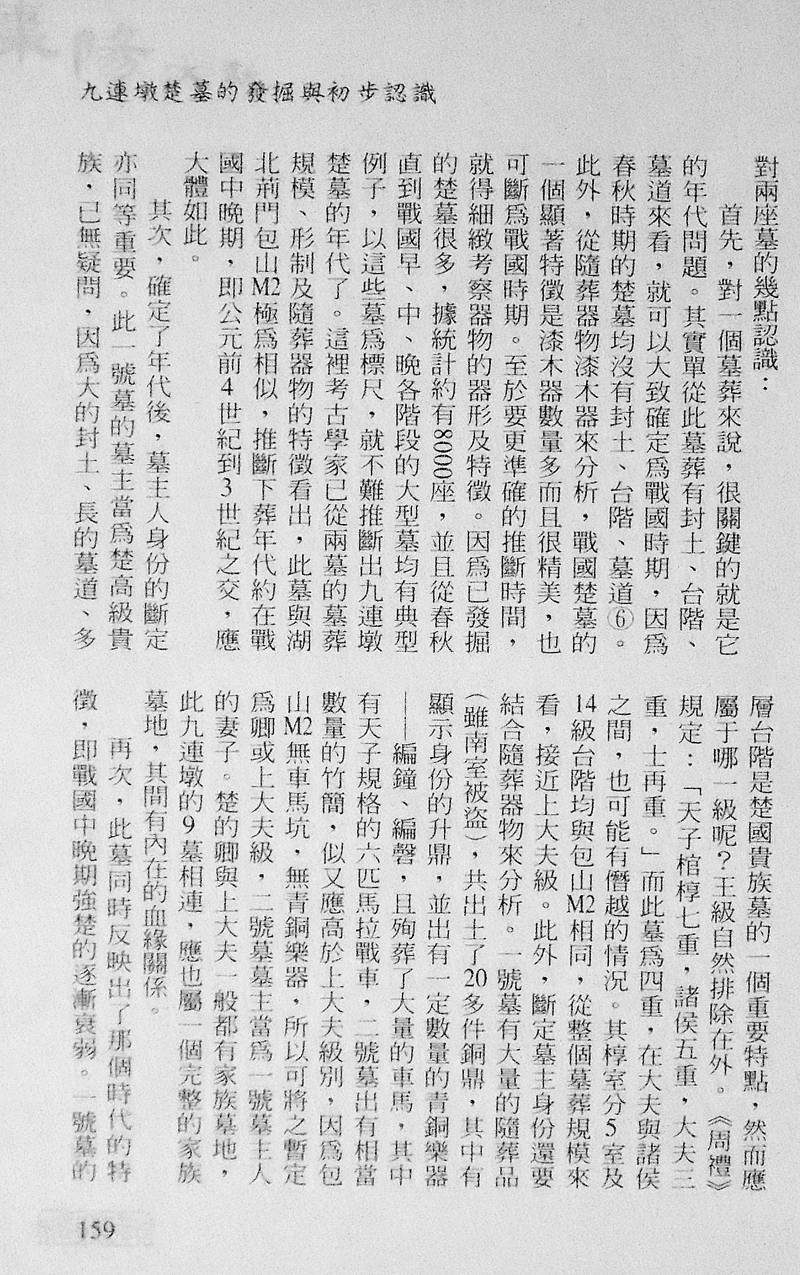 九連墩楚墓的發掘與初步認識
對兩座墓的幾點認識：
首先，對一個墓葬來說，很關鍵的就是它
的年代問題。其實單從此墓葬有封土、台階、
墓道來看，就可以大致確定爲戰國時期，因爲
春秋時期的楚墓均沒有封土、台階、墓道⑥。
此外，從隨葬器物漆木器來分析，戰國楚墓的
一個顯著特徵是漆木器數量多而且很精美，也
可斷爲戰國時期。至於要更準確的推斷時間，
就得細緻考察器物的器形及特徵。因爲已發掘
的楚墓很多，據統計約有8000座，並且從春秋
直到戰國早、中、晚各階段的大型墓均有典型
例子，以這些墓爲標尺，就不難推斷出九連墩
楚墓的年代了。這裡考古學家已從兩墓的墓葬
規模、形制及隨葬器物的特徵看出，此墓與湖
北荊門包山M2極爲相似，推斷下葬年代約在戰
國中晚期，即公元前4世紀到3世紀之交，應
大體如此。
其次，確定了年代後，墓主人身份的斷定
亦同等重要。此一號墓的墓主當爲楚高級貴
族，已無疑問，因爲大的封土、長的墓道、多
層台階是楚國貴族墓的一個重要特點，然而應
屬于哪一級呢？王級自然排除在外。《周禮》
規定：「天子棺椁七重，諸侯五重，大夫三
重，士再重。」而此墓爲四重，在大夫與諸侯
之間，也可能有僭越的情況。其椁室分5室及
14級台階均與包山M2相同，從整個墓葬規模來
看，接近上大夫級。此外，斷定墓主身份還要
結合隨葬器物來分析。一號墓有大量的隨葬品
（雖南室被盜），共出土了20多件銅鼎，其中有
顯示身份的升鼎，並出有一定數量的青銅樂器
——編鐘、編磬，且殉葬了大量的車馬，其中
有天子規格的六匹馬拉戰車，二號墓出有相當
數量的竹簡，似又應高於上大夫級別，因爲包
山M2無車馬坑，無青銅樂器，所以可將之暫定
爲卿或上大夫級，二號墓墓主當爲一號墓主人
的妻子。楚的卿與上大夫一般都有家族墓地，
此九連墩的9墓相連，應也屬一個完整的家族
墓地，其間有內在的血緣關係。
再次，此墓同時反映出了那個時代的特
徵，即戰國中晚期強楚的逐漸衰弱。一號墓的
159